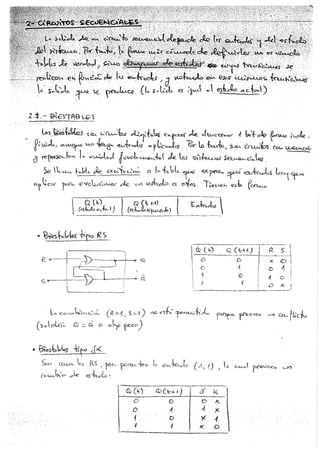 2- CIRCUITOS SECUENCIALES
La salida de un circuito secuencial depende de las entradas y del estado
del sistema. Por tanto, la forma más cómoda de definirlos no es usando
tablas de verdad, sino diagramas de estados en cuyas transiciones se
realicen en función de las entradas, y notando en esas mismas transiciones
la salida que se produce (la salida es igual al estado actual)
2.1.- BIESTABLES
Los biestables son circuitos digitales capaces de almacenar 1 bit de forma inde-
finida, aunque no tengan entradas aplicadas. Por lo tanto, son circuitos con memoria
y representan la unidad fundamental de los sistemas secuenciales
Se llama tabla de excitación a la tabla que expresa qué entradas hay que
aplicar para evolucionar de un estado a otro. Tienen esta forma
Q(t) Q(t+1) Entradas
(estado actual) (estado siguiente)
• Biestables tipo RS
R Q
S Q̄
Q(t) Q(t+1) R S
0 0 X 0
0 1 0 1
1 0 1 0
1 1 0 X
La combinación (R=1, S=1) no está permitida porque provoca un conflicto
(salida Q = Q̄ o algo peor)
• Biestables tipo JK
Son como los RS, pero permiten la entrada (1,1), la cual provoca un
cambio de estado:
Q(t) Q(t+1) J K
0 0 0 X
0 1 1 X
1 0 X 1
1 1 X 0